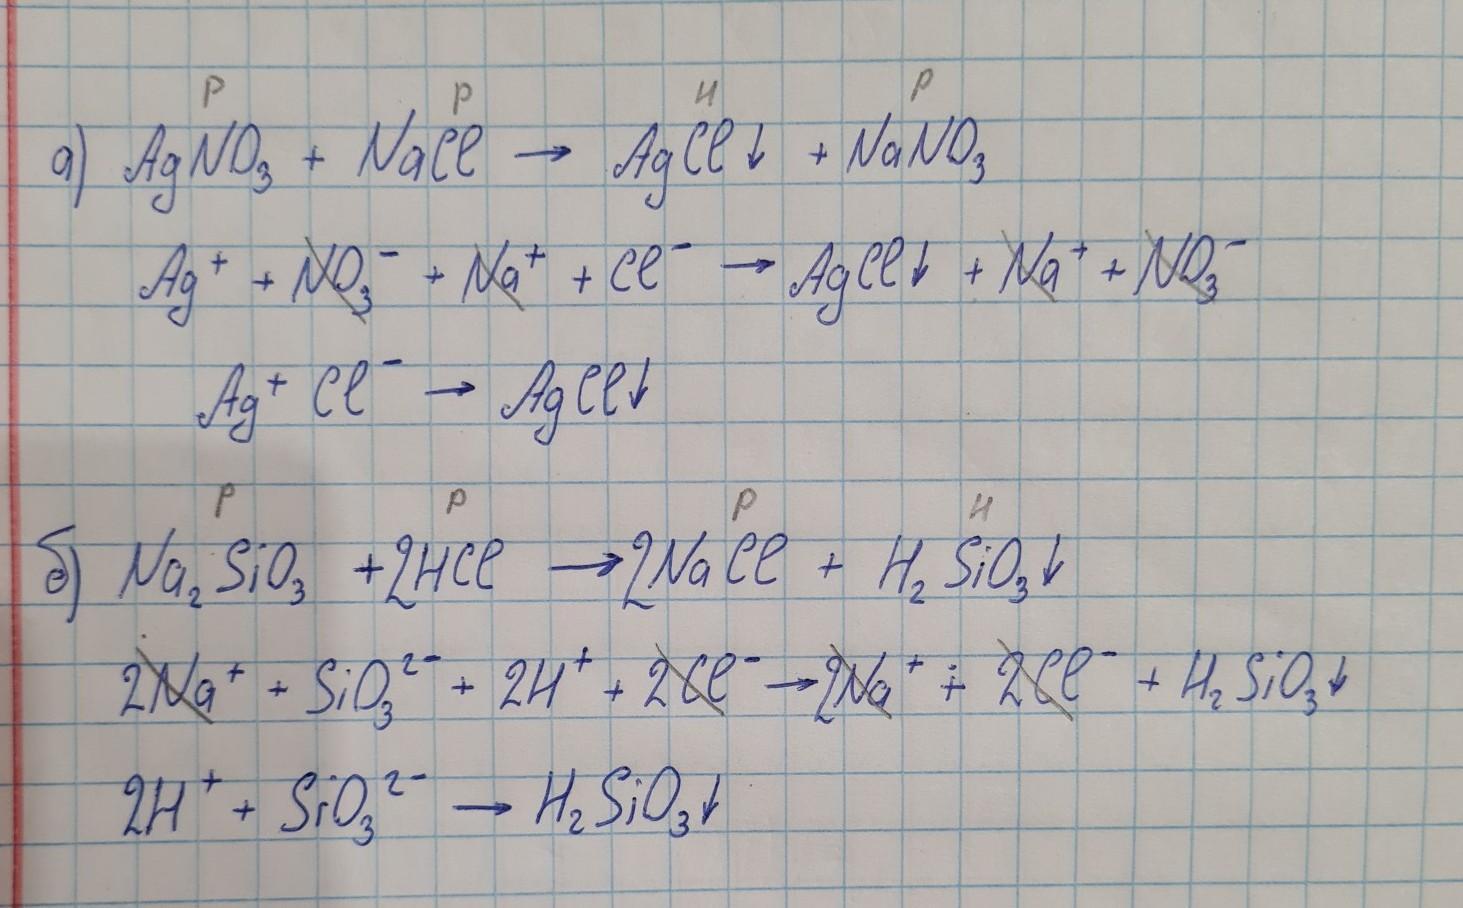 Р Р Н Р
а) AgNO₃ + NaCl → AgCl↓ + NaNO₃
Ag⁺ + NO₃⁻ + Na⁺ + Cl⁻ → AgCl↓ + Na⁺ + NO₃⁻
Ag⁺ Cl⁻ → AgCl↓
Р Р Р Н
б) Na₂SiO₃ + 2HCl → 2NaCl + H₂SiO₃↓
2Na⁺ + SiO₃²⁻ + 2H⁺ + 2Cl⁻ → 2Na⁺ + 2Cl⁻ + H₂SiO₃↓
2H⁺ + SiO₃²⁻ → H₂SiO₃↓